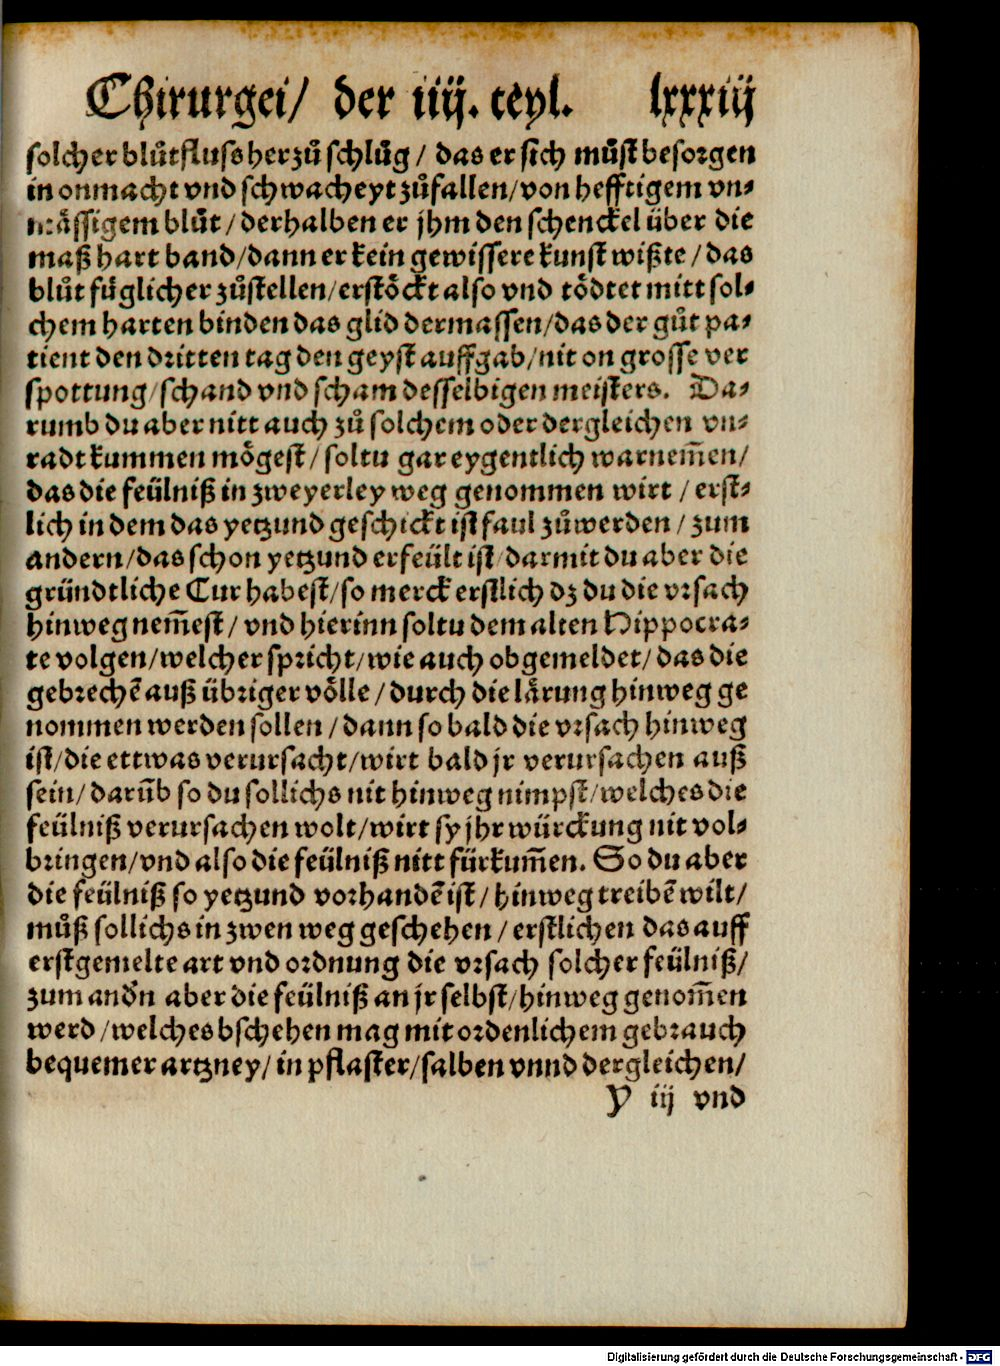 Chirurgei/ der iiij. teyl. lxxxiij
solcher blůtfluss herzů schlůg / das er sich můst besorgen
in onmacht vnd schwacheyt zůfallen/von hefftigem vn⸗
mässigem blůt / derhalben er jhm den schenckel über die
maß hart band/dann er kein gewissere kunst wißte / das
blůt füglicher zůstellen/erstöckt also vnd tödtet mitt sol⸗
chem harten binden das glid dermassen/das der gůt pa⸗
tient den dritten tag den geyst auffgab/nit on grosse ver
spottung/schand vnd scham desselbigen meisters. Da⸗
rumb du aber nitt auch zů solchem oder dergleichen vn⸗
radt kummen mögest / soltu gar eygentlich warnem̃en/
das die feülniß in zweyerley weg genommen wirt / erst⸗
lich in dem das yetzund geschickt ist faul zůwerden / zum
andern/das schon yetzund erfeült ist/darmit du aber die
gründtliche Cur habest/so merck erstlich dz du die vrsach
hinweg nem̃est / vnd hierinn soltu dem alten Hippocra⸗
te volgen/welcher spricht/wie auch obgemeldet/das die
gebrechẽ auß übriger völle / durch die lärung hinweg ge
nommen werden sollen / dann so bald die vrsach hinweg
ist/die ettwas verursacht/wirt bald jr verursachen auß
sein/ darũb so du sollichs nit hinweg nimpst/welches die
feülniß verursachen wolt/wirt sy jhr würckung nit vol⸗
bringen/vnd also die feülniß nitt fürkum̃en. So du aber
die feülniß so yetzund vorhandẽ ist / hinweg treibẽ wilt/
můß sollichs in zwen weg geschehen / erstlichen das auff
erstgemelte art vnd ordnung die vrsach solcher feülniß/
zum andern aber die feülniß an jr selbst/hinweg genom̃en
werd /welches bschehen mag mit ordenlichem gebrauch
bequemer artzney/ in pflaster/salben vnnd dergleichen/
Y iij vnd
Digitalisierung gefördert durch die Deutsche Forschungsgemeinschaft - DFG